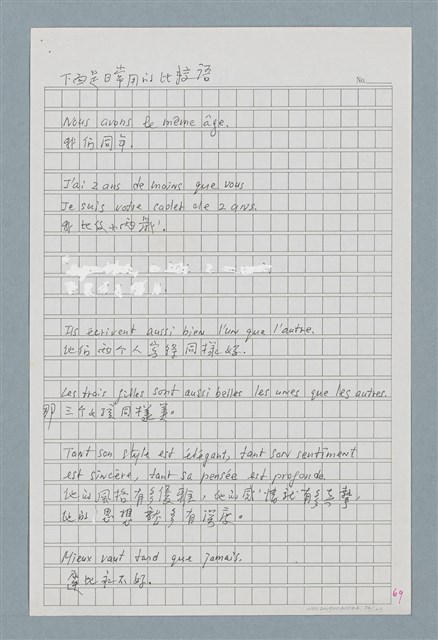 下面是日常用的比較语
No.
Nous avons le même âge.
我们同年.
J'ai 2 ans de moins que vous
Je suis votre cadet de 2 ans.
我比你小两歲.
Ils écrivent aussi bien l'un que l'autre.
他们两个人寫得同樣好.
Les trois filles sont aussi belles les unes que les autres.
那三个女孩同樣美。
Tant son style est élégant, tant son sentiment
est sincère, tant sa pensée est profonde.
他的風格有多優雅，他的感情就有多真摯，
他的思想就多有深度。
Mieux vaut tard que jamais.
遲比永不好.
69